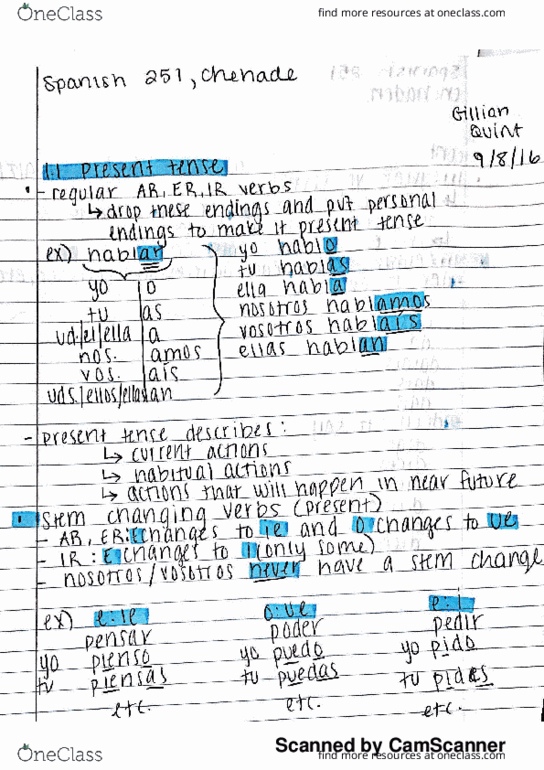 OneClass
find more resources at oneclass.com
Spanish 251, Chehade
Gillian
Quint
9/8/16
1.1 Present tense
- regular AR, ER, IR verbs
↳ drop these endings and put personal
endings to make it present tense
ex) hablar
yo | o
tu | as
ud/el/ella | a
nos. | amos
vos. | ais
uds/ellos/ellas | an
yo hablo
tu hablas
ella habla
nosotros hablamos
vosotros hablais
ellas hablan
- present tense describes:
↳ current actions
↳ habitual actions
↳ actions that will happen in near future
Stem changing verbs (present)
- AR, ER: E changes to ie and O changes to ue
- IR: E changes to i (only some)
- nosotros/vosotros never have a stem change
ex) e:ie
pensar
yo pienso
tu piensas
etc.
o:ue
poder
yo puedo
tu puedas
etc.
e:i
pedir
yo pido
tu pides
etc.
Scanned by CamScanner
OneClass
find more resources at oneclass.com